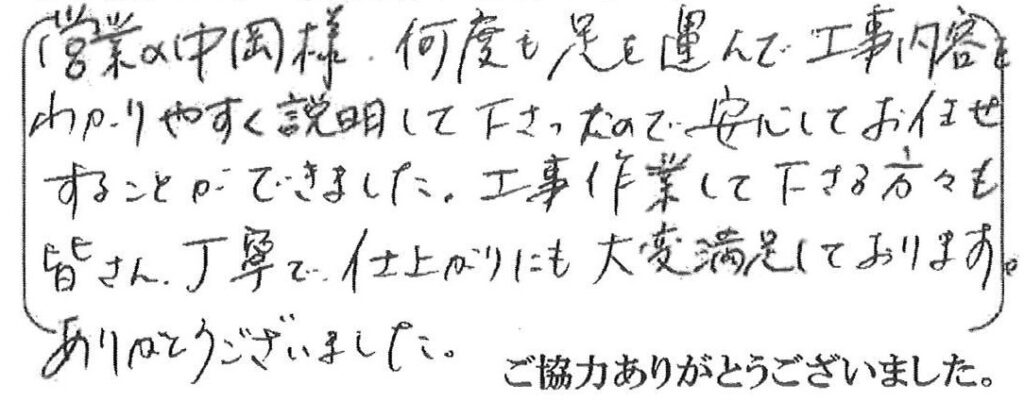 営業の中岡様．何度も足を運んで工事内容を
わかりやすく説明して下さったので安心してお任せ
することができました。工事作業して下さる方々も
皆さん、丁寧で、仕上がりにも大変満足しております。
ありがとうございました。
ご協力ありがとうございました。